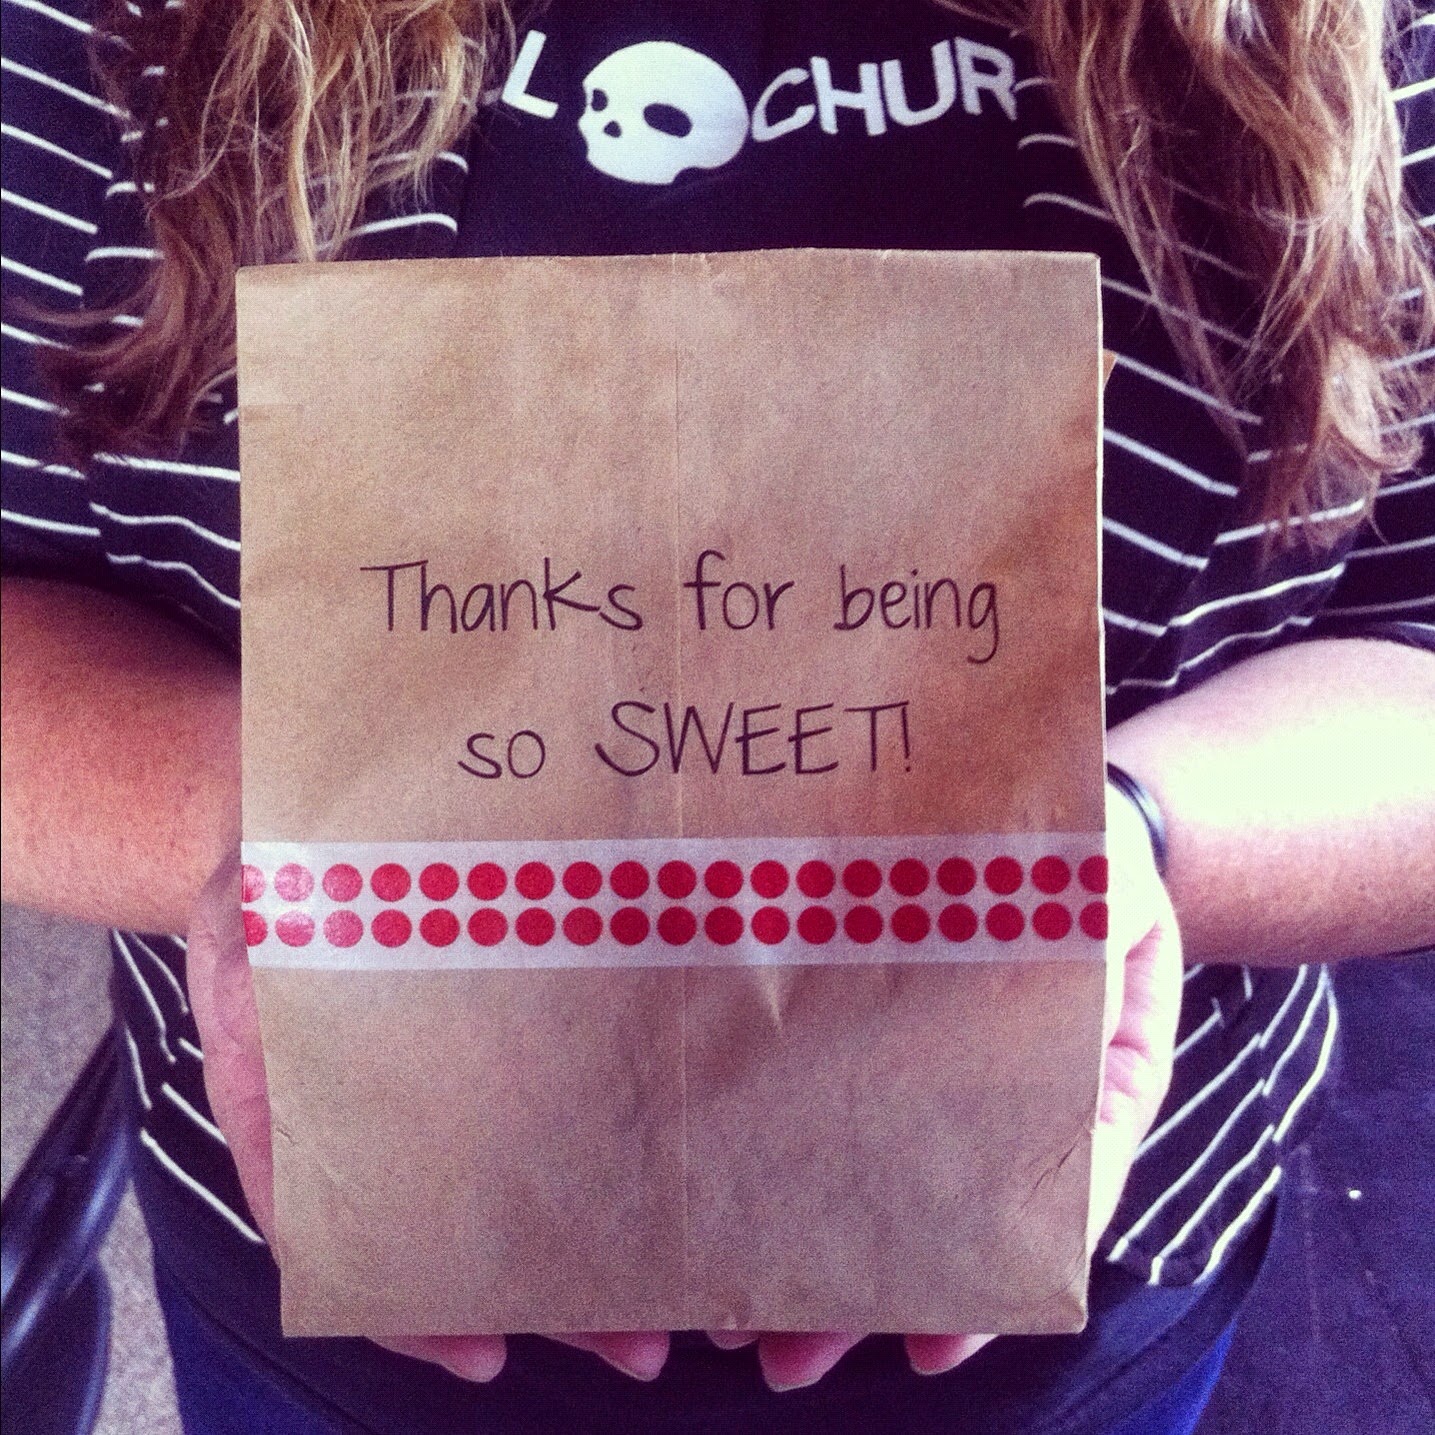 L CHUR
Thanks for being
so SWEET!